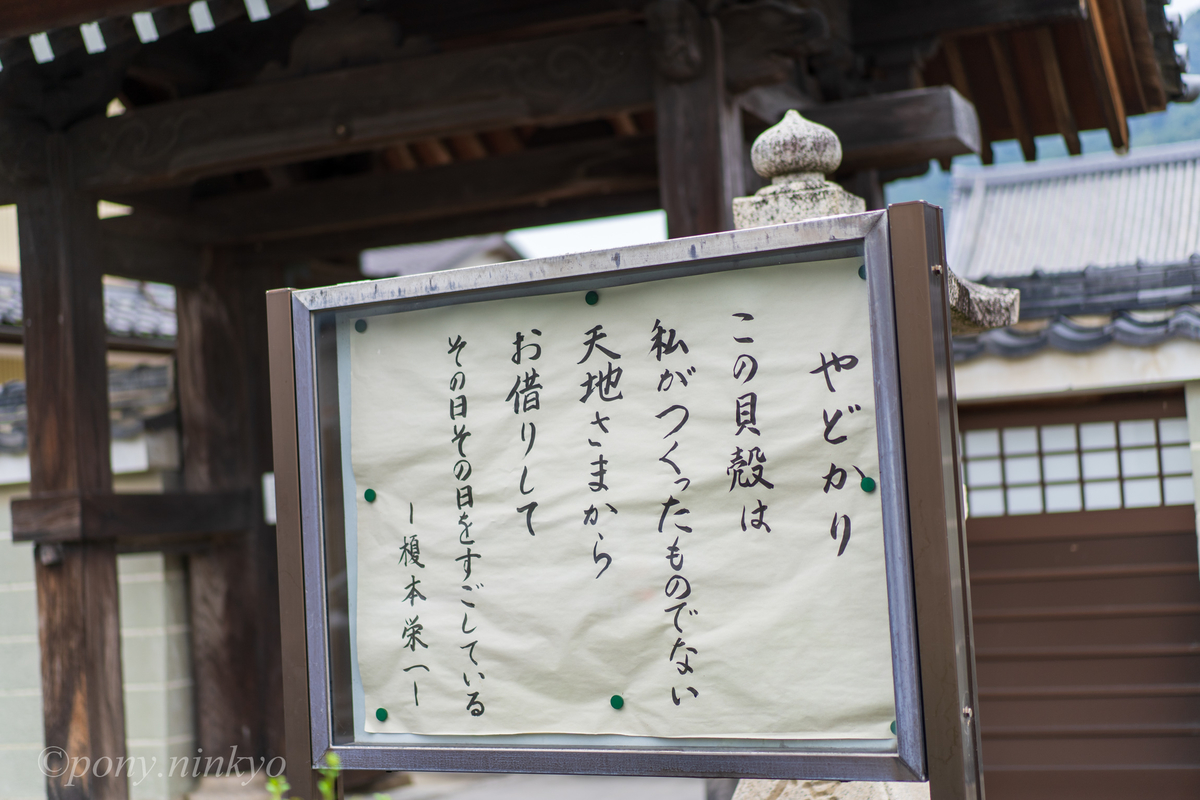 やどかり
この貝殻は
私がつくったものでない
天地さまから
お借りして
その日その日をすごしている
ー榎本栄一ー
©pony.ninkyo